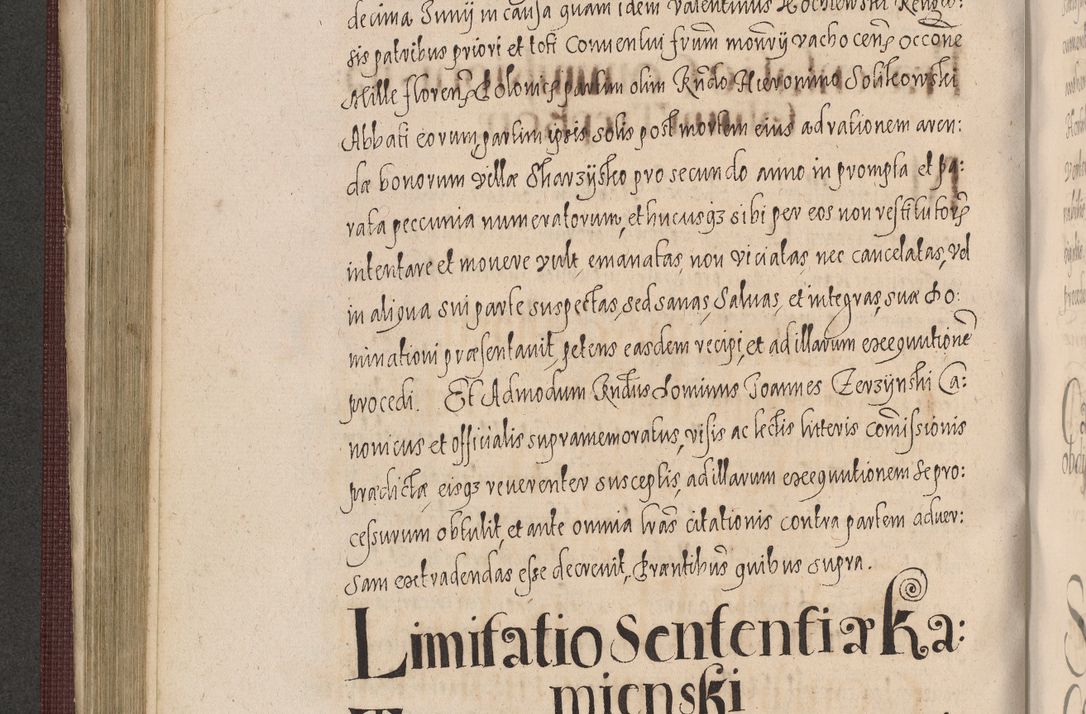 decima Junij in causa quam idem Valentinus Kochlewski Rengw:
sis patribus priori et toti Conventui frum monrij vachocen. occone
Mille floren. Polonic. partim olim Rndo Hieronimo Solikowski
Abbati eorum, partim ipsis solis post mortem eius ad rationem aren:
dæ bonorum villæ Skarzÿsko pro secundo anno in prompta et pa:
rata peccunia numeratorum, et hucusq3 sibi per eos non restitutor.
intentare et movere vult, emanatas, non viciatas, nec cancelatas, vel
in aliqua sui parte suspectas, sed sanas, Salvas, et integras, suæ do:
minationi præsentavit, petens easdem recipi, et ad illarum exequutione
procedi. Et Admodum Rndus Dominus Joannes Zerzÿnski Ca:
nonicus et officialis supramemoratus, visis ac lectis litteris comissionis
prædictæ eisq3 reverenter susceptis, ad illarum exequutionem se pro:
cessurum obtulit, et ante omnia lras citationis contra partem adver:
sam extradendas esse decrevit, Præntibus quibus supra.
Limitatio Sententiæ Ka:
mienski